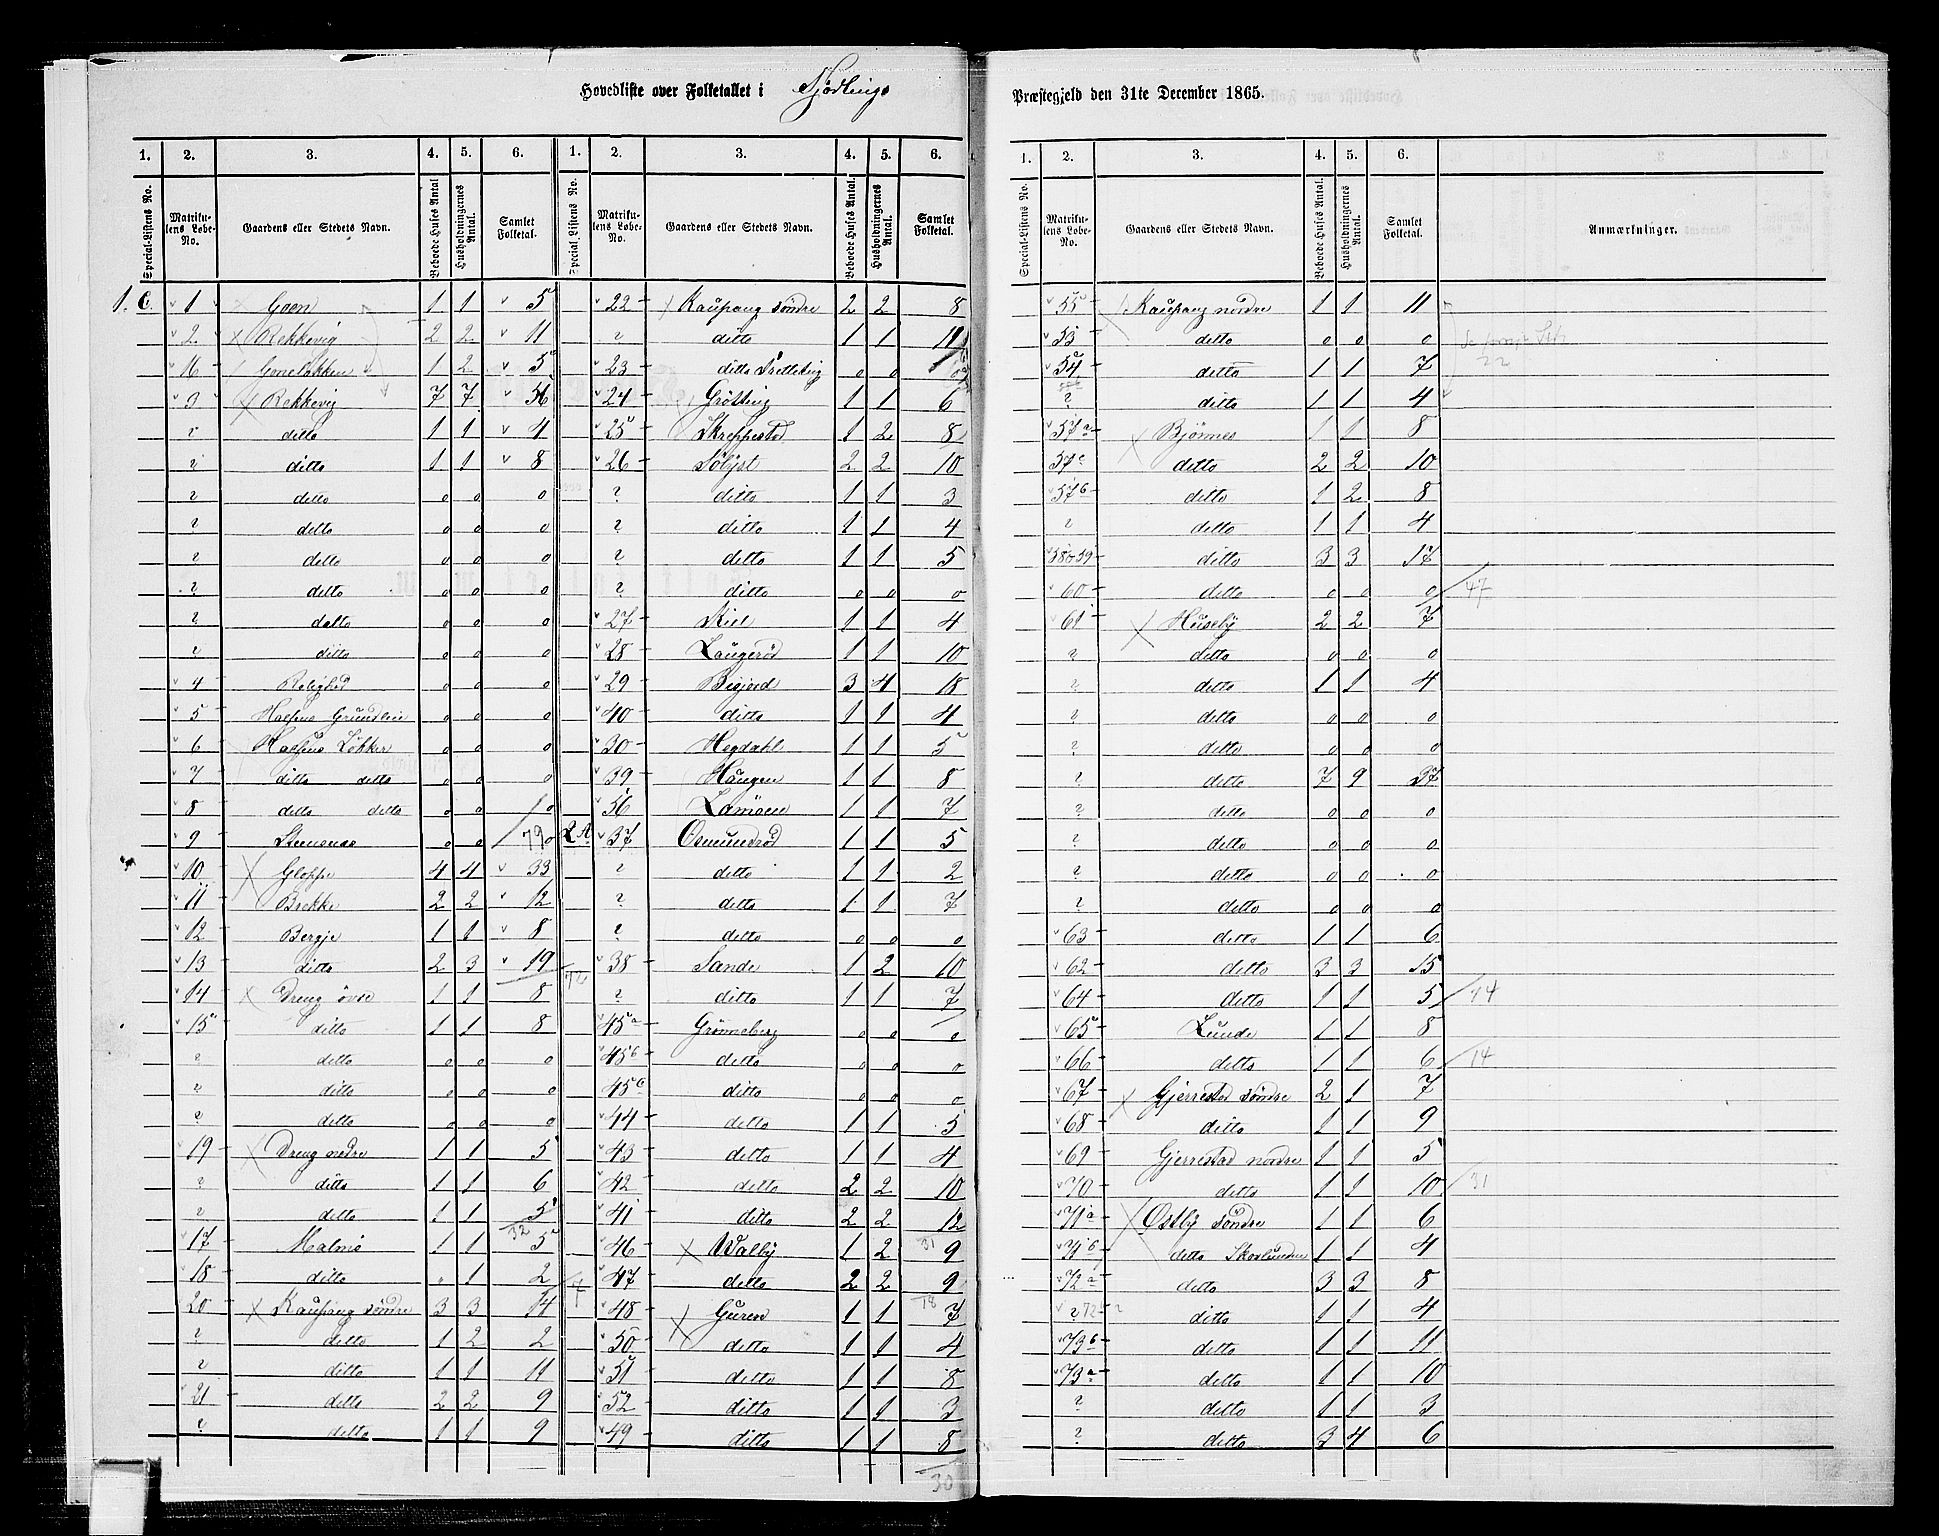 Hovedliste over Folketallet i Tjødlings Præstegjeld den 31te December 1865.
1. 2. 3. 4. 5. 6. 1. 2. 3. 4. 5. 6.
Special-Listens No. Matrikulens Løbe-No. Gaardens eller Stedets Navn. Beboede Huses Antal Husholdningernes Antal. Samlet Folketal. Special Listens No. Matrikulens Løbe-No. Gaardens eller Stedets Navn. Beboede Huses Antal. Husholdningernes Antal. Samlet Folketal.
1. C. 1 Goen 1 1 5
2 Rekkevig 2 2 11
16 Gonelökken 1 2 5
3 Rekkevig 7 7 56
" ditto 1 1 4
" ditto 1 1 8
" ditto 0 0 0
" ditto 0 0 0
" ditto 0 0 0
" ditto 0 0 0
" ditto 0 0 0
" ditto 0 0 0
4 Rolighed 0 0 0
5 Grundleie 0 0 0
6 Løkker 0 0 0
7 ditto ditto 0 0 0
8 ditto ditto 0 0 0
9 0 0 0
79
10 Gloppe 4 4 33
11 Brekke 2 2 12
12 Bergje 1 1 8
13 ditto 2 3 19
72
14 Dreng övre 1 1 8
15 ditto 1 1 8
" ditto 0 0 0
" ditto 0 0 0
" ditto 0 0 0
19 Dreng nedre 1 1 5
" ditto 1 1 6
" ditto 1 1 5
32
17 Malmö 1 1 5
18 ditto " 1 2
7
20 Kaupang söndre 3 3 14
" ditto 1 2 2
" ditto 1 1 11
21 ditto 2 2 9
" ditto 1 1 9
22 Kaupang söndre 2 2 8
" ditto 1 1 11
23 ditto 0 0 0
24 Grötting 1 1 6
25 Skreppestad 1 2 8
26 Sölyst 2 2 10
" ditto 1 1 3
" ditto 1 1 4
" ditto 1 1 5
" ditto 0 0 0
27 Kiel 1 1 4
28 Laugeröd 1 1 10
29 Bisjord 3 4 18
40 ditto 1 1 4
30 Hegdahl 1 1 5
39 Haugen 1 1 8
56 Lamöen 1 1 7
2 A. 37 Osmundröd 1 1 5
" ditto 1 1 2
" ditto 1 1 7
" ditto 0 0 0
38 Sande 1 2 10
" ditto 1 1 7
45a Grönneberg 0 0 0
45b ditto 0 0 0
45c ditto 0 0 0
44 ditto 1 1 5
43 ditto 1 1 4
42 ditto 2 2 10
41 ditto 2 2 12
31
46 Walby 1 2 9
47 ditto 2 2 9
18
48 Guren 1 1 7
50 ditto 1 1 4
51 ditto 1 1 8
52 ditto 1 1 3
49 ditto 1 1 8
30
1. 2. 3. 4. 5. 6.
Special-Listens No. Matrikulens Løbe-No. Gaardens eller Stedets Navn. Beboede Huses Antal. Husholdningernes Antal. Samlet Folketal. Anmærkninger.
55 Kaupang nordre 1 1 11
53 ditto 0 0 0
22
54 ditto 1 1 7
" ditto 1 1 4
57a Bjönnes 1 1 8
57c ditto 2 2 10
57b ditto 1 2 8
" ditto 1 1 4
58o59 ditto 3 3 17
60 ditto 0 0 0 47
61 Huseby 2 2 7
" ditto 0 0 0
" ditto 1 1 4
" ditto 0 0 0
" ditto 0 0 0
" ditto 7 9 37
" ditto 0 0 0
" ditto 0 0 0
" ditto 0 0 0
" ditto 0 0 0
63 ditto 1 1 6
62 ditto 3 3 15
64 ditto 1 1 5 74
65 Lunde 1 1 8
66 ditto 1 1 6 14
67 Gjerrestad söndre 2 1 7
68 ditto 1 1 9
69 Gjerrestad nordre 1 1 5
70 ditto 1 1 10 31
71a Ostby söndre 1 1 6
71b ditto Skovlunden 1 1 4
72a ditto 3 3 8
" 72b ditto 1 1 4
73b ditto 1 1 11
73a ditto 1 1 10
" ditto 1 1 3
" ditto 3 4 6